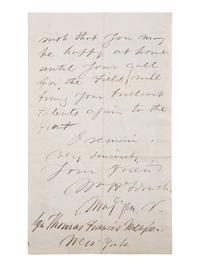 wish that you may
be happy at home
until your call
for the field will
bring your brilliant
talents again to the
front
I remain
very sincerely
Your friend
Wm H French
Maj Gen V.
Gen Thomas Francis Meagher
New York